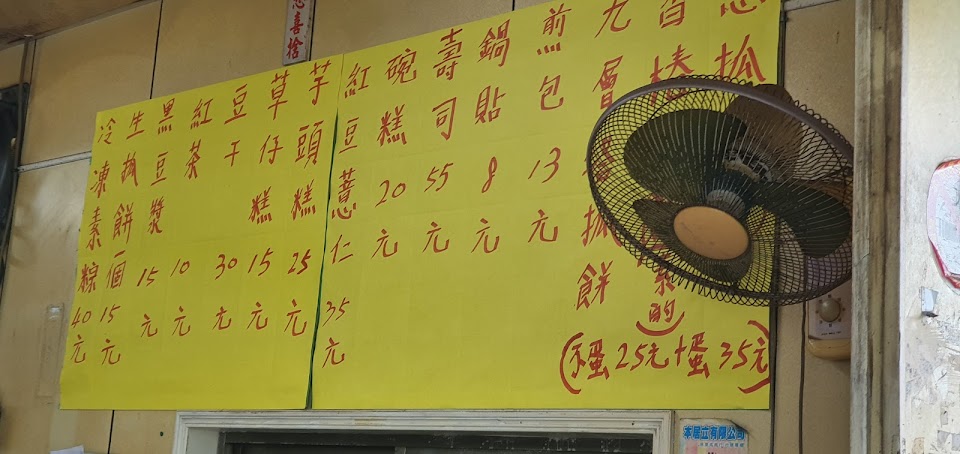 喜捨
抓
椿
九層塔抓餅
(的)
(不蛋25元+蛋35元)
煎包13元
鍋貼8元
壽司55元
碗糕20元
紅豆薏仁35元
芋頭糕25元
草仔糕15元
豆干30元
紅茶10元
黑豆漿15元
生抓餅個15元
冷凍素粽40元
有限公司